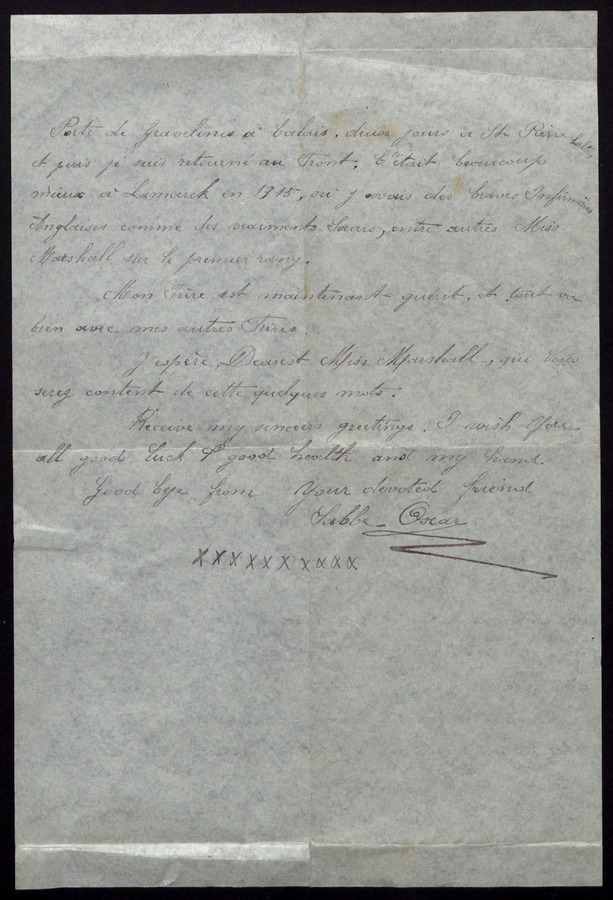 Porte de Gravelines à Calais, deux jours à St Pierre
et puis je suis retourné au Front. C'était beaucoup
mieux à Lamarck en 1915, où j'avais des braves Infirmières
Anglaises comme des vraiments Sœurs, entre autres Miss
Marshall sur le premier rang.
Mon Frère est maintenant guérit, et tout va
bien avec mes autres Frères.
J'espère, Dearest Miss Marshall, que Vous
serez content de cette quelques mots.
Receive my sincers greetings. I wish You
all good luck & good health and my hand.
Good bye from Your devoted friend
Sabbe Oscar
xxxxxxxxxx